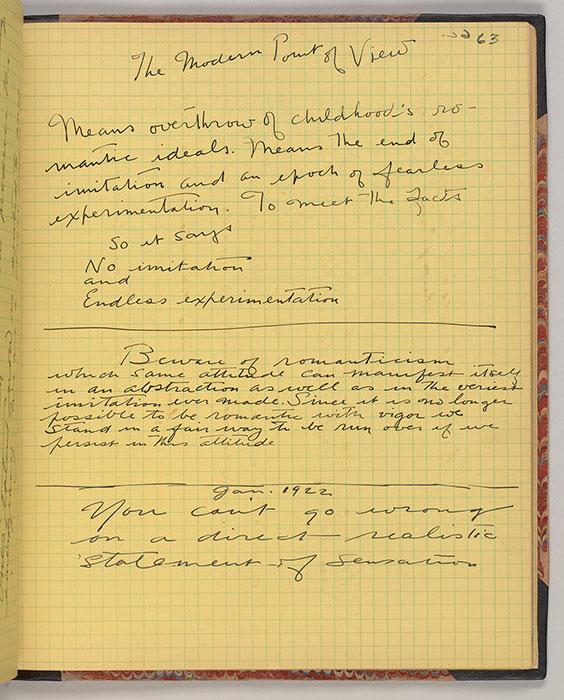 63
The Modern Point of View
Means overthrow of childhood's ro-
mantic ideals. Means the end of
imitation and an epoch of fearless
experimentation. To meet the facts
So it says
No imitation
and
Endless experimentation
Beware of romanticism
which same attitude can manifest itself
in an abstraction as well as in the veriest
imitation ever made. Since it is no longer
possible to be romantic with vigor we
stand in a fair way to be run over if we
persist in this attitude
Jan. 1922
You cant go wrong
on a direct realistic
statement of sensation